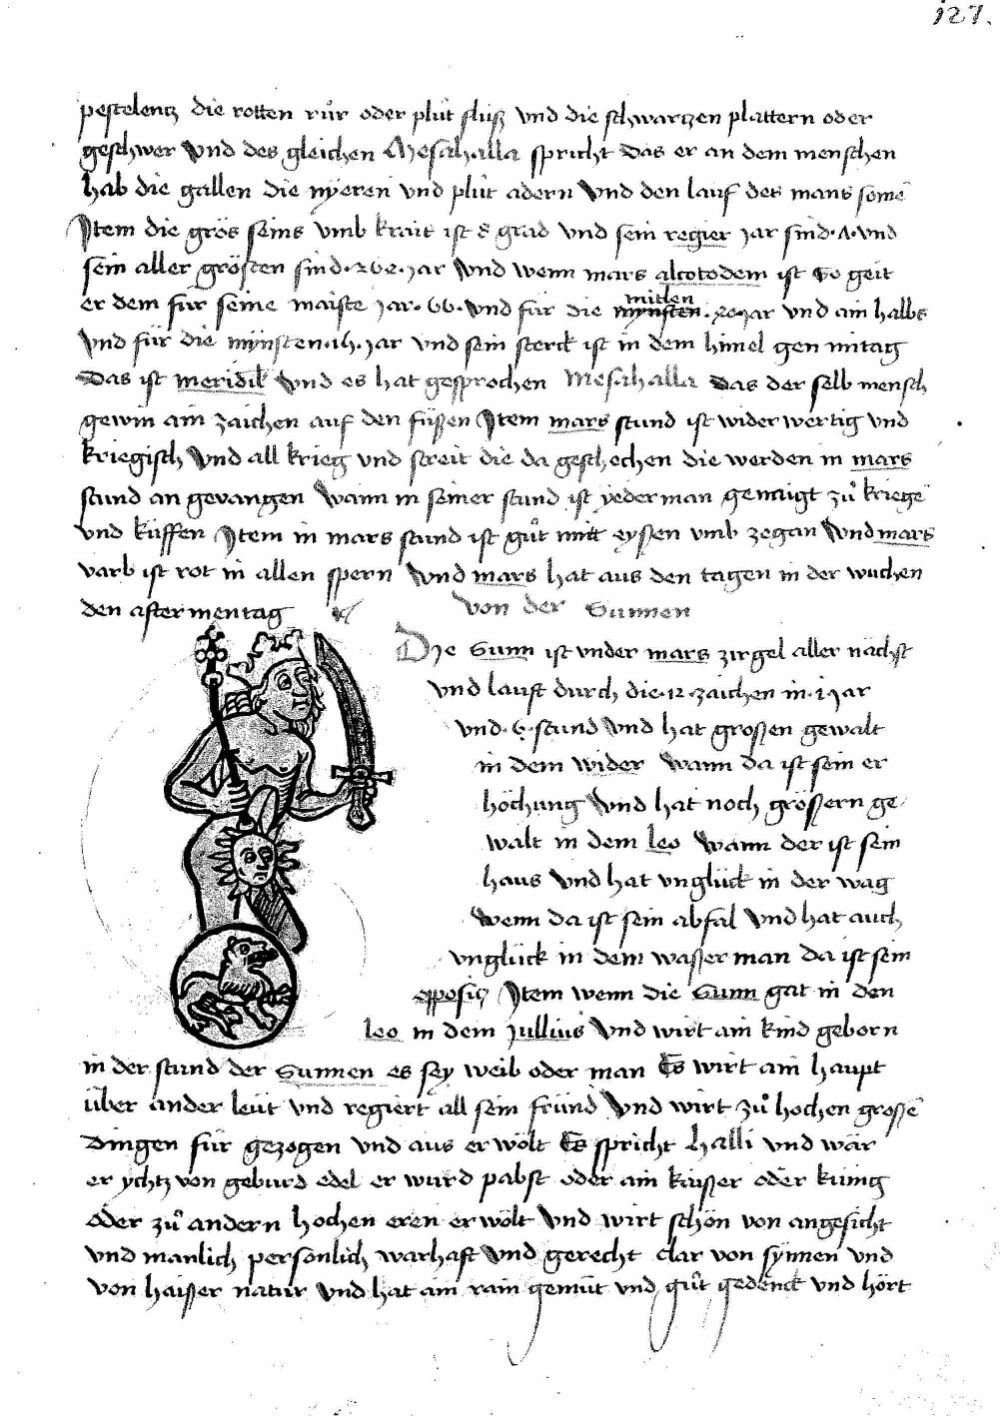 127.
pestelentz die rotten rür oder plüt flusz vnd die schwartzen plattern oder
geschwer Vnd des gleichen Mesahalla spricht das er an dem menschen
hab die gallen die nÿeren vnd plüt adern Vnd den lauf des mans somē
Item die grös seins vmb krait ist 8 grad vnd sein regier jar sind · Λ · vnd
sein aller grösten sind · 262 · jar Vnd wenn mars alcotodem ist So geit
er dem für seine maiste jar · 66 · Vnd für die mynsten mitlen · 20 · jar vnd ain halbs
Vnd für die mÿnsten · 15 · jar vnd sein sterck ist in dem himel gen mitag
Das ist meridiēl Vnd es hat gesprochen Mesahalla das der selb mensch
gewin ain zaichen auf den füßen Item mars stund ist wider wertig vnd
kriegisch Vnd all krieg vnd streit die da geschechen die werden in mars
stund an gevangen Wann in seiner stund ist yeder man genaigt zů kriegē
vnd küffen Item in mars stund ist gůt mitt eyßen vmb zegan Vnd mars
varb ist rot in allen spern Vnd mars hat aus den tagen in der wuchen
den aftermentag
von der Sunnen
Dye Sunn ist vnder mars zirgel aller nächst
vnd lauft durch die · 12 · zaichen in · 1 jar
vnd · 6 · stund Vnd hat großen gewalt
in dem wider Wann da ist sein er
höchung Vnd hat noch größern ge
walt in dem leo Wann der ist sein
haus Vnd hat vnglück in der wag
Wenn da ist sein abfal Vnd hat auch
vnglück in dem wasser man da ist sein
opposicz Item wenn die Sunn gat in den
leo in dem Jullius Vnd wirt ain kind geborn
in der stund der Sunnen es sey weib oder man Es wirt ain haupt
über ander leüt vnd regiert all sein fründ Vnd wirt zů hochen großē
dingen für gezogen vnd aus erwölt Es spricht halli vnd wär
er ychtz von geburd edel er wurd pabst oder ain kaißer oder künig
oder zů andern hochen eren erwölt Vnd wirt schön von angesicht
vnd manlich persönlich warhaft Vnd gerecht clar von synnen vnd
von haißer natur Vnd hat ain rain gemüt vnd gůt gedenck vnd hört